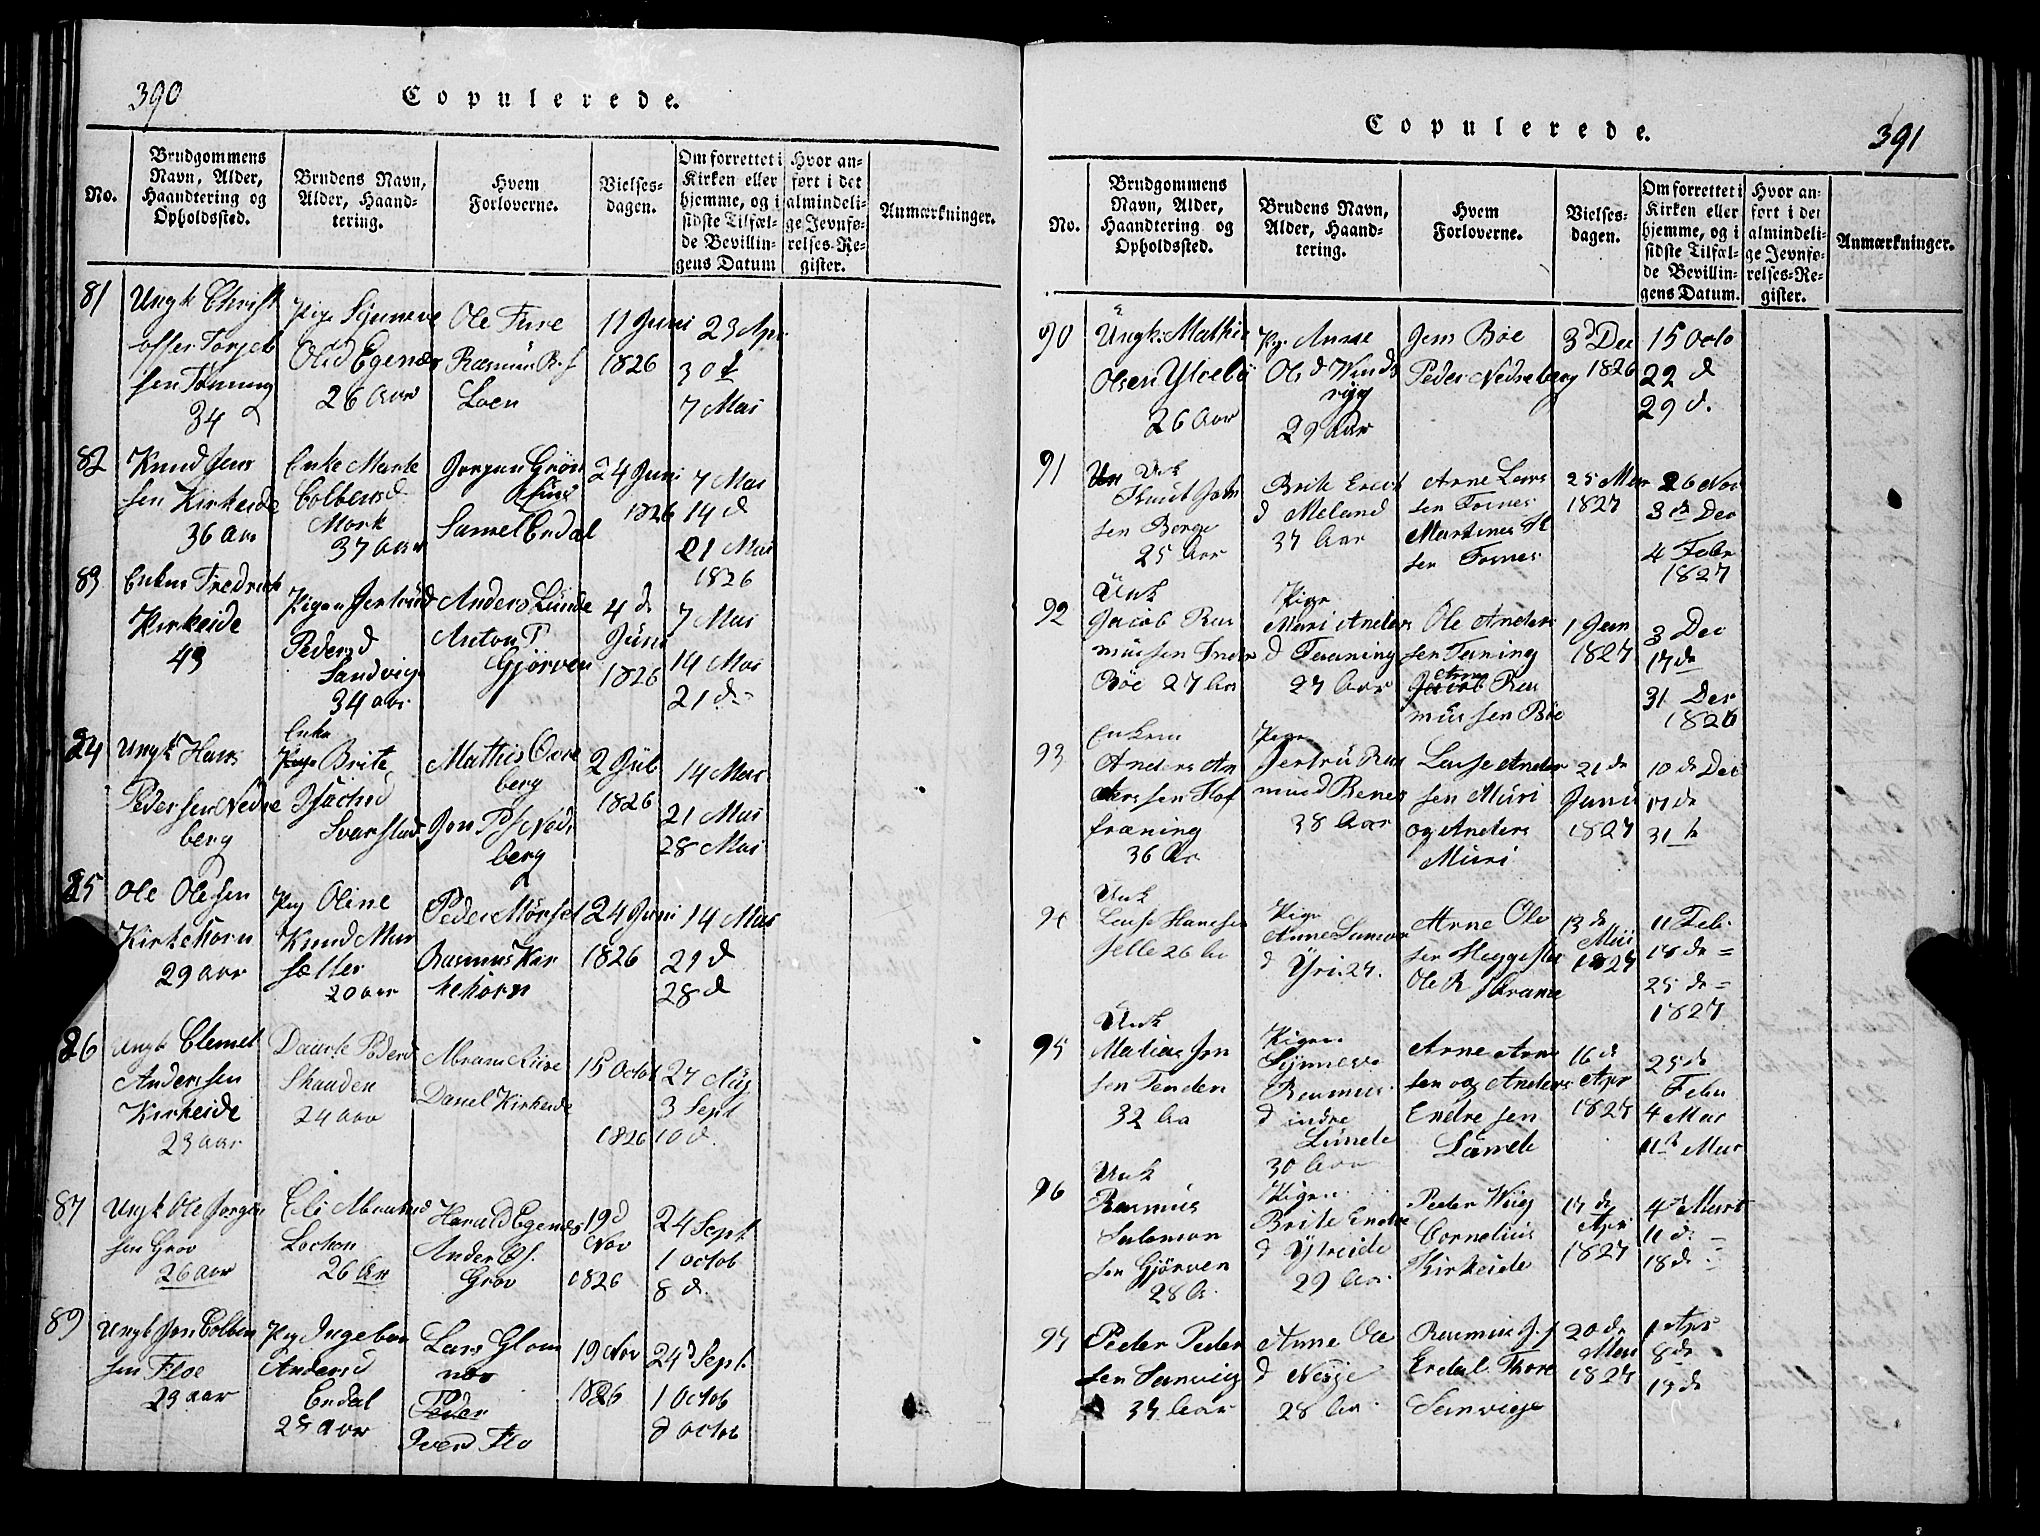 390
Copulerede.
No.
Brudgommens
Navn, Alder,
Haandtering og
Opholdssted.
Brudens Navn,
Alder, Haand-
tering.
Hvem
Forloverne.
Vielses-
dagen.
Om forrettet i
Kirken eller
hjemme, og i
sidste Tilfæl-
de Bevillin-
gens Datum
Hvor an-
ført i det
almindeli-
ge Jevnfø-
relses-Re-
gister.
Anmærkninger.
81
Ungk Christ
offer Torjeb
sen Tonning
34
Pige Synneve
Olsd Egenæs
26 Aar
Ole Fure
Rasmus
Loen
11 Juni
1826
23 Apr
30 d
7 Mai
82
Knud Jens
sen Kirkeide
36 Aar
Enke Marte
Colbensd
Mork
37 Aar
Jorgen
Samuel Erdal
24 Juni
1826
7 Mai
14 d
21 Mai
1826
83
Enkm Fredrich
Kirkeide
43
Pigen Jertrud
Pedersd
Sandvig
34 aar
Anders Lunde
Anton P
Gjörven
4 de
Juni
1826
7 Mai
14 Mai
21 d
84
Ungk Hans
Pedersen Nedre
berg
Enke
Brite
Svarstad
Mathis Ovre
berg
Jon P Nedr
berg
2 Jul
1826
14 Mai
21 Mai
28 Mai
85
Ole Olesen
Kirkehorn
29 aar
Pig Oline
Knud Mur
sætter
20 aar
Peder
Rasmus Kir
kehorn
24 Juni
1826
14 Mai
21 d
28 d
86
Ungk Clemet
Anderssen
Kirkeide
23 aar
Daarte Pedersd
Skaaden
24 aar
Abram Riise
Danel Kirkeide
15 Octob
1826
27 Aug
3 Sept
10 d.
87
Ungk Ole Jorgen
sen Grov
26 aar
Eli Abramsd
Lochen
26 Aar
Harald Egenes
Ander
Grov
19 d
Nov
1826
24 Sept
1 octob
8 d.
89
Ungk Jon Colben
sen Floe
23 aar
Pig Ingebor
Andersd
Erdal
Lars Glom
nes
Iversd Flo
19 Nov
1826
24d Sept.
1 Octob
8 octob
Copulerede.
391
No.
Brudgommens
Navn, Alder,
Haandtering og
Opholdssted.
Brudens Navn,
Alder, Haand-
tering.
Hvem
Forloverne.
Vielses-
dagen.
Om forrettet i
Kirken eller
hjemme, og i
sidste Tilfæl-
de Bevillin-
gens Datum.
Hvor an-
ført i det
almindeli-
ge Jevnfø-
relses-Re-
gister.
Anmærkninger.
90
Ungk. Mathis
Olsen Ytrebö
26 Aar
Pg. Anne
Ols d Vinds
ryg
29 Aar
Jens Böe
Peder Nedreberg
3d Dec
1826
15 Octo
22 d
29 d.
91
Unk
Knut Joh
sen Berge
25 Aar
Brite Erich
d Meland
37 Aar
Arne Lars
sen Tornes
Martines
sen Tornes
25 Mar
1827
26 Nov
3 de Dec
4 Febr
1827
92
Unk
Jacob Ras
mussen Indre
Böe 27 Aar
Pige
Mari Anders
d Taaning
27 Aar
Ole Anders
sen Taning
Arne
Ras
mussen Böe
1 Jan
1827
3 Dec
17 de
31 Dec
1826
93
Enkem
Anders An
derssen Hof
fræning
36 Aar
Pige
Jertru Ras
musd Renes
38 Aar
Lasse Ander
sen Muri
og Anders
Muri
21 de
Juni
1827
10 de Dec
17 de
31 d
94
Unk
Lasse Hanssen
26 Aar
Pige
Anne
d Yri 27.
Arne Ols
sen Heggestad
Ole R
13 de
Mai
1827
11 Feb.
18 de
25 de
1827
95
Unk
Matias Jon
sen Tenden
32 Aar
Pigen
Synneve
Rasmus
d indre
Lunde
30 Aar
Arne Arne
sen og Anders
Endresen
Lunde
16 d
Apr
1827
25 de
Febu
4 Mar
11d Mar
96
Unk
Rasmus
Salomon
sen Gjörven
28 A.
Pigen
Brite Endre
d Ytreide
29 Aar
Peeder Wiig
Cornelius
Kirkeide
17 de
Apr
1827
4de Mars
11 de
18 de
97
Peeder Peder
sen Sanvig
37 Aar
Anne
d Nesje
28 Aar
Rasmus
Erdal. Thore
Sanvige
20 de
Mai
1827
1 Apr
8 de